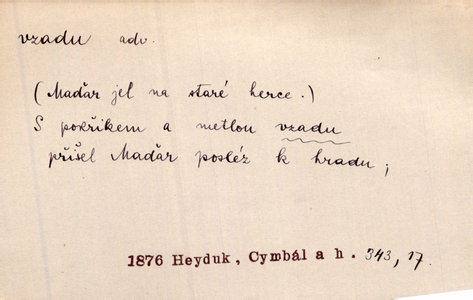 vzadu adv.
(Maďar jel na staré herce.)
S pokřikem a metlou vzadu
přišel Maďar posléz k hradu;
1876 Heyduk, Cymbál a h. 343, 17.